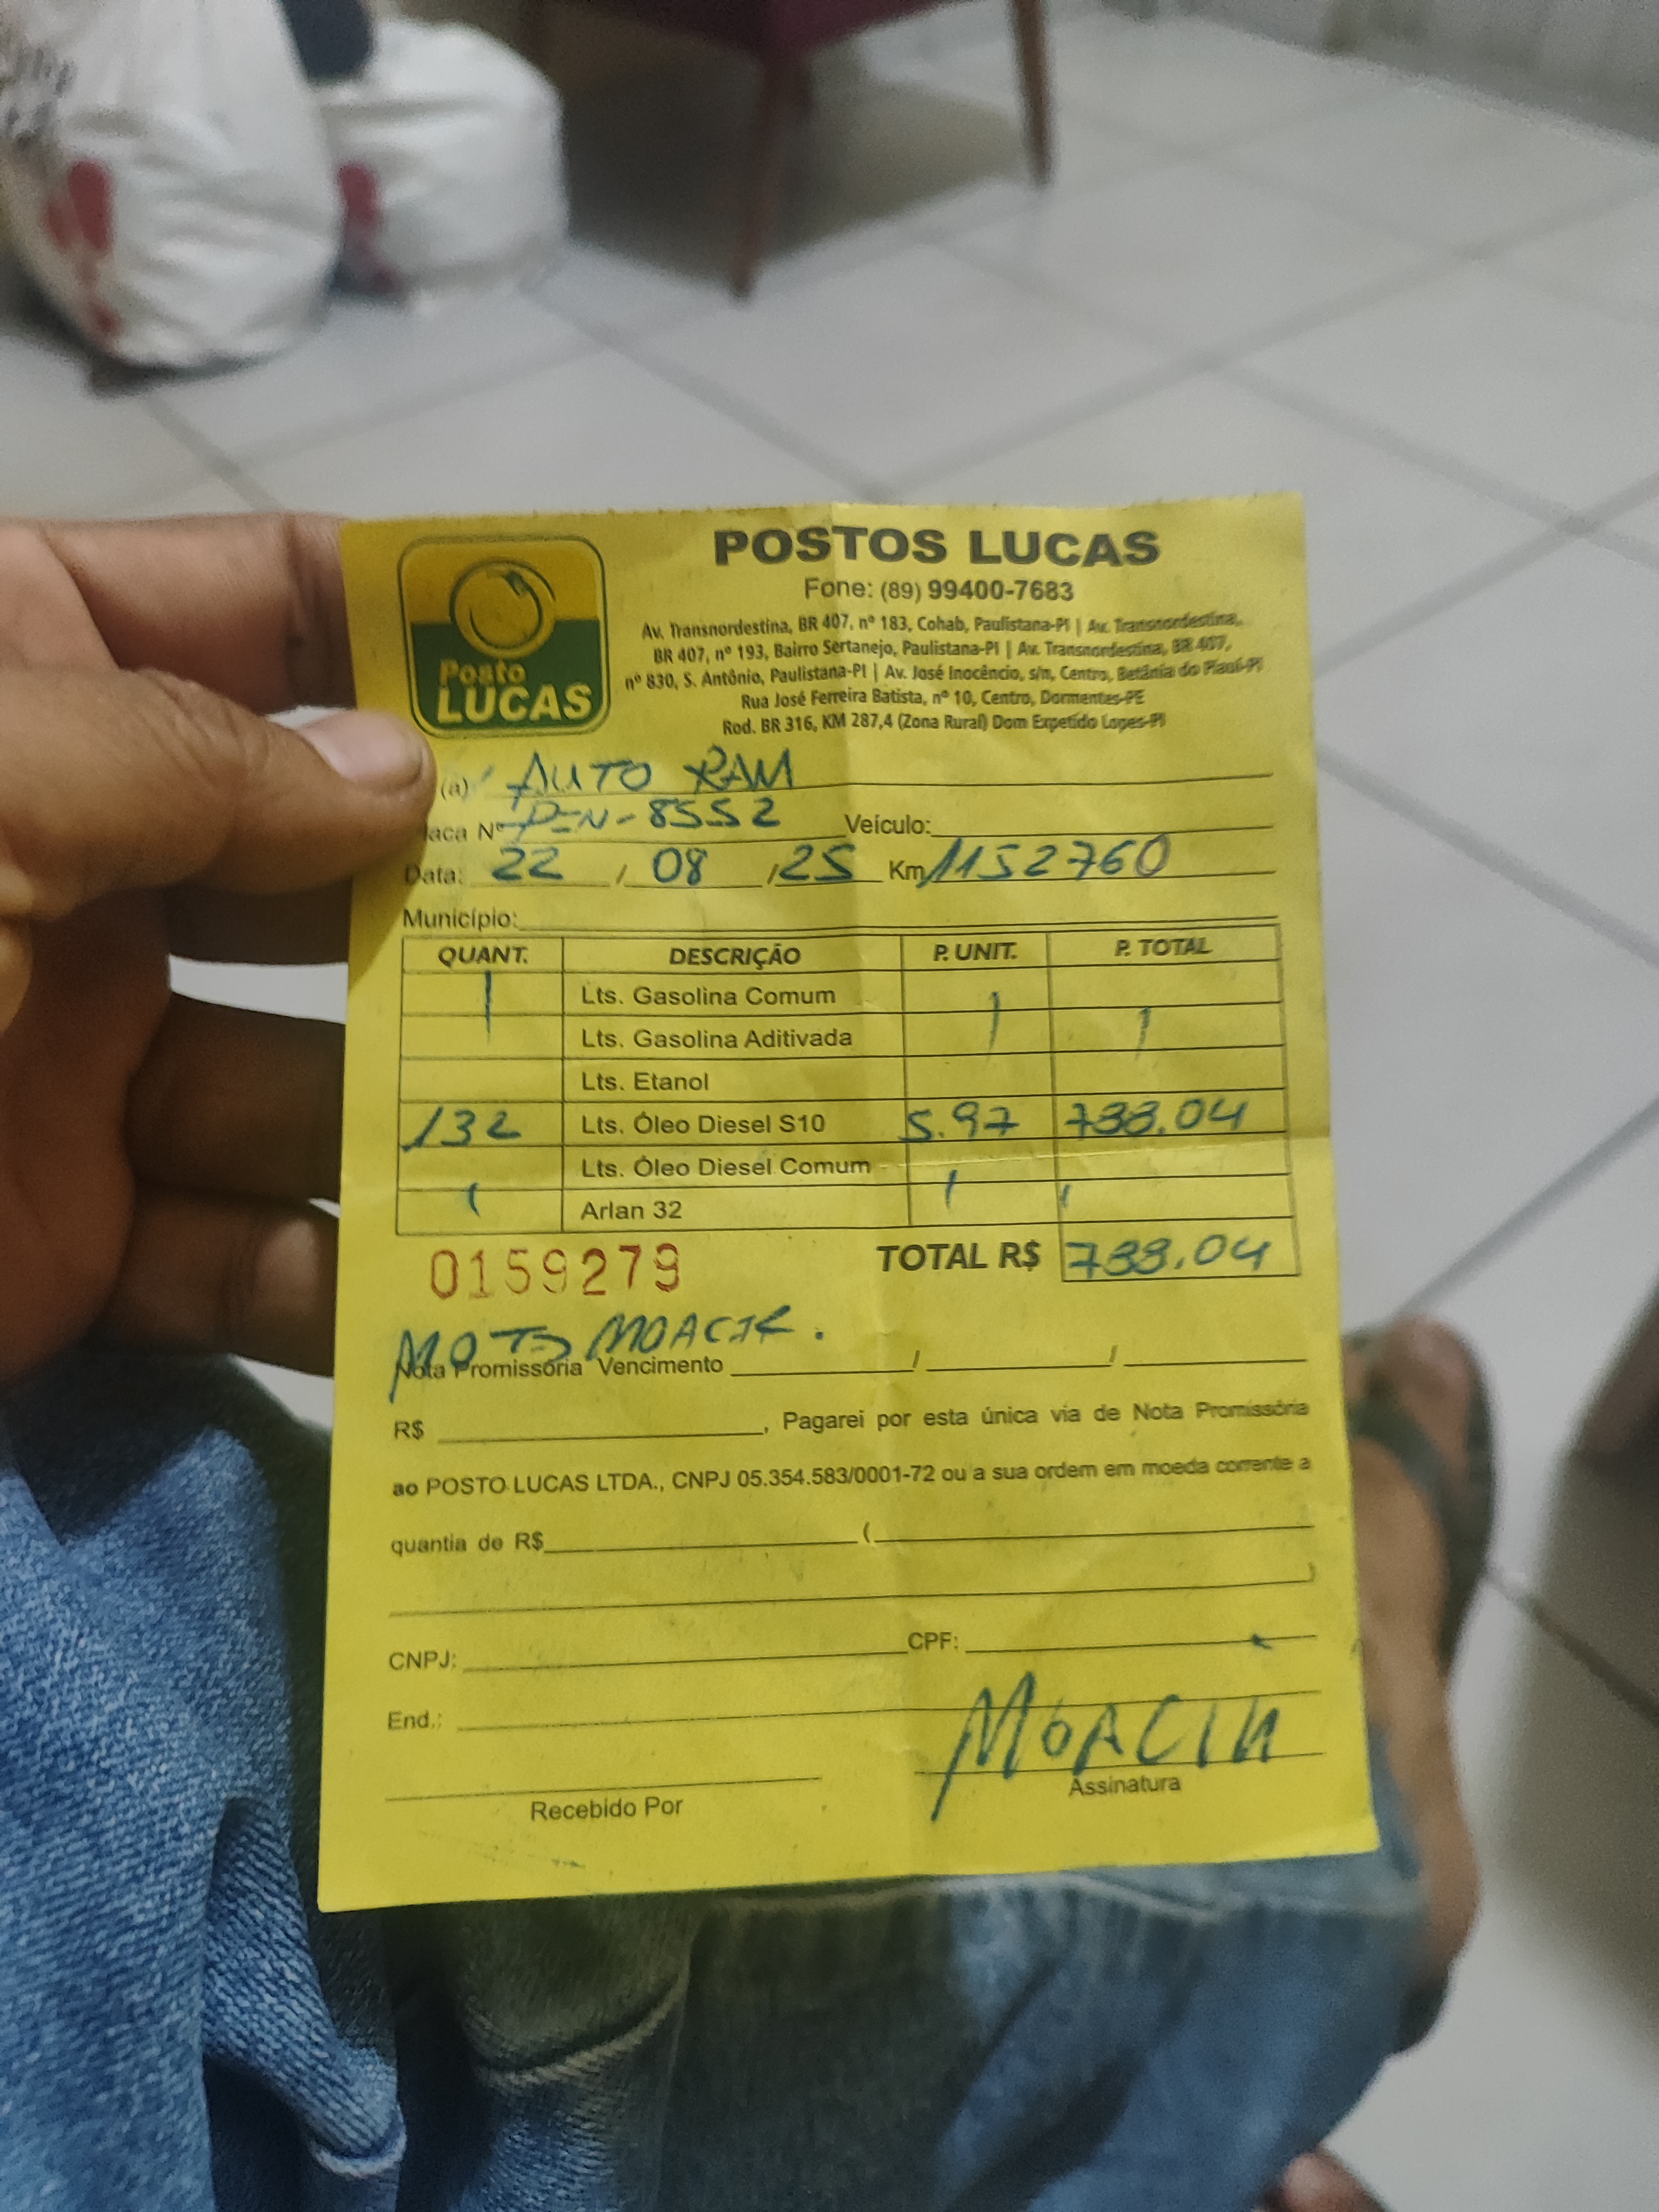 POSTOS LUCAS
Fone: (89) 99400-7683
Av. Transnordestina, BR 407, nº 183, Cohab, Paulistana-PI | Av. Transnordestina,
BR 407, nº 193, Bairro Sertanejo, Paulistana-PI | Av. Transnordestina, BR 407,
nº 830, S. Antônio, Paulistana-PI | Av. José Inocêncio, s/n, Centro, Betânia do Piauí-PI
Rua José Ferreira Batista, nº 10, Centro, Dormentes-PE
Rod. BR 316, KM 287,4 (Zona Rural) Dom Expedido Lopes-PI
Posto
LUCAS
(a) AUTO RAM
laca Nº 8552 Veículo:
Data: 22 / 08 / 25 Km 1152760
Município:
QUANT. DESCRIÇÃO P. UNIT. P. TOTAL
Lts. Gasolina Comum
Lts. Gasolina Aditivada
Lts. Etanol
132 Lts. Óleo Diesel S10 5.97 788.04
Lts. Óleo Diesel Comum
Arlan 32
0159279 TOTAL R$ 788.04
MOTO MOACIR.
Nota Promissória Vencimento / /
R$ , Pagarei por esta única via de Nota Promissória
ao POSTO LUCAS LTDA., CNPJ 05.354.583/0001-72 ou a sua ordem em moeda corrente a
quantia de R$ (
)
CNPJ: CPF:
End.:
MOACIR
Recebido Por Assinatura